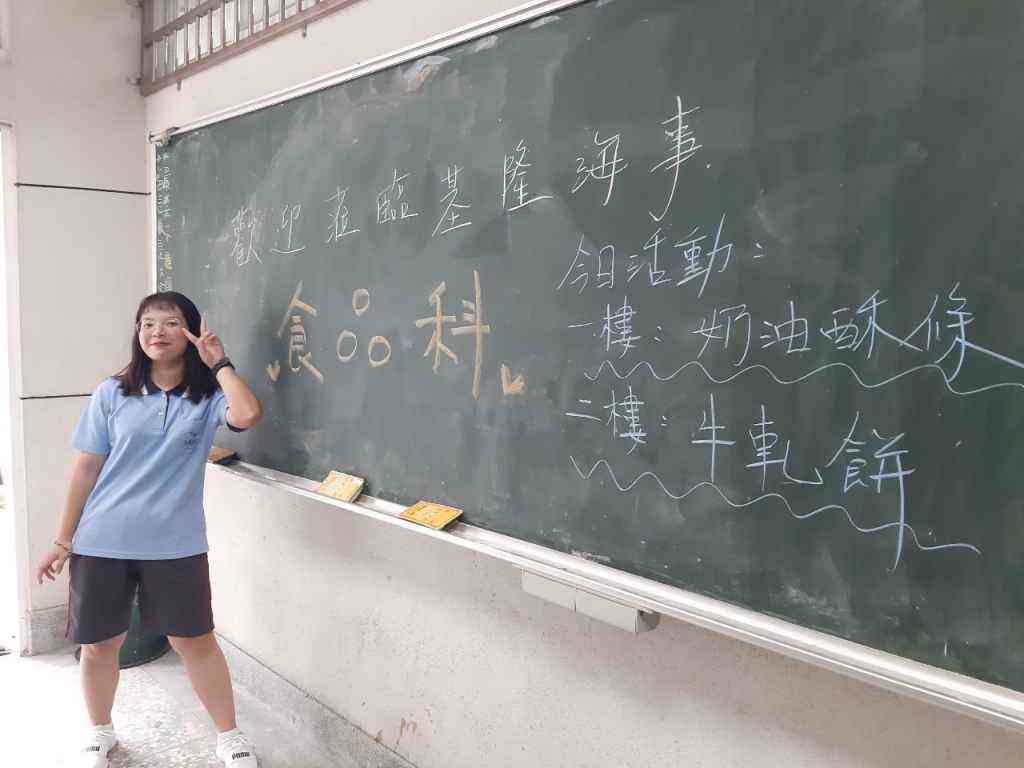 歡迎蒞臨基隆海事
食品科
今日活動：
一樓：奶油酥條
二樓：牛軋餅
PUMA